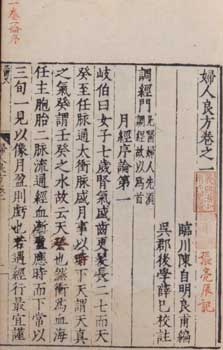 婦人良方卷之一
臨川陳自明良甫編
吳郡後學薛己校註
調經門凡醫婦人先須調經故以爲首
月經序論第一
岐伯曰女子七歲腎氣盛齒更髮長二七而天
癸至任脈通太衝脈盛月事以時下天謂天真
之氣癸謂壬癸之水故云天癸也然衝爲血海
任主胞胎二脈流通經血漸盈應時而下常以
三旬一見以像月盈則虧也若遇經行最宜謹